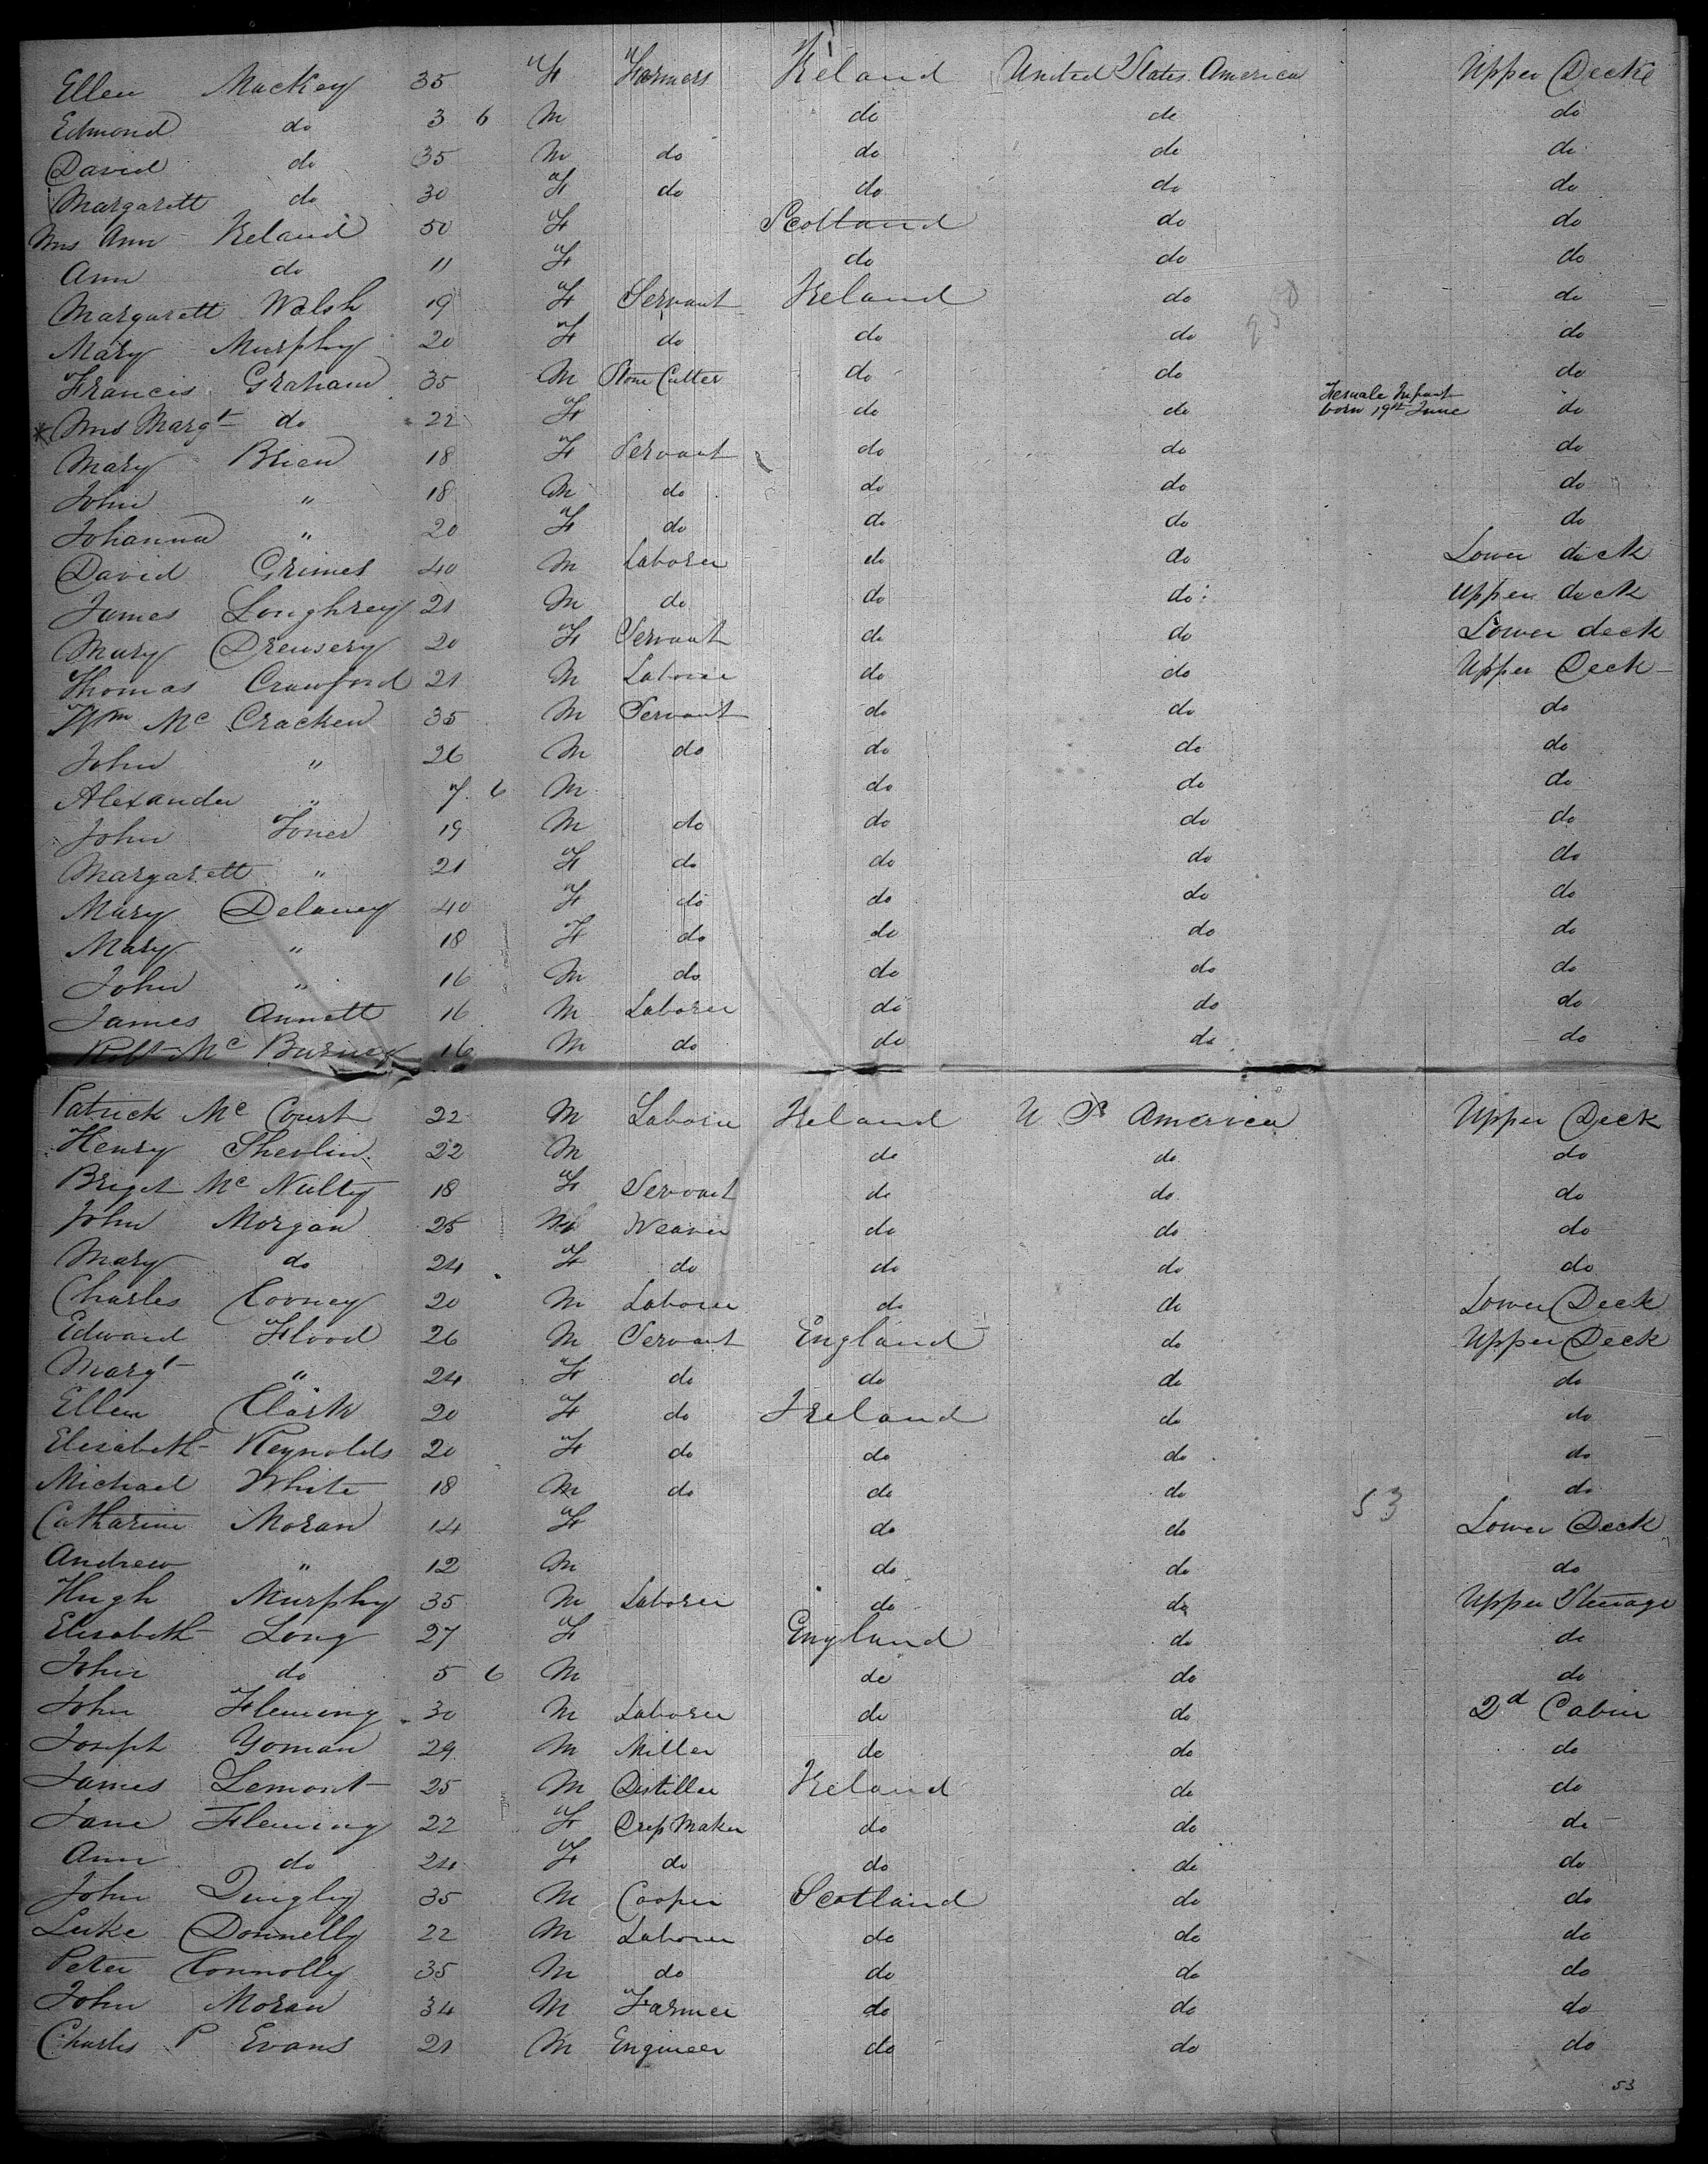 Ellen Mackey 35 F Farmers Ireland United States America Upper Decke
Edmond do 3 6 M do do do
David do 35 M do do do do
Margarett do 30 F do do do do
Mrs Ann Ireland 50 F Scotland do do
Ann do 11 F do do do
Margarett Walsh 19 F Servant Ireland do do
250
Mary Murphy 20 F do do do do
Francis Graham 35 M Stone Cutter do do do
* Mrs Margt do 22 F do do Female Infant born 19th June do
Mary Brien 18 F Servant do do do
John " 18 M do do do do
Johanna " 20 F do do do do
David Grimes 40 M Laborer do do Lower deck
James Loughrey 21 M do do do Upper deck
Mary Drewsery 20 F Servant do do Lower deck
Thomas Crawford 21 M Laborer do do Upper Deck
Wm Mc Cracken 35 M Servant do do do
John " 26 M do do do do
Alexander " 7 6 M do do do
John Jones 19 M do do do do
Margarett " 21 F do do do do
Mary Delaney 40 F do do do do
Mary " 18 F do do do do
John " 16 M do do do do
James Annett 16 M Laborer do do do
Robt Mc Burney 16 M do do do do
Patrick Mc Court 22 M Laborer Ireland U S America Upper Deck
Henry Shevlin 22 M do do do
Briget Mc Nulty 18 F Servant do do do
John Morgan 25 M Weaver do do do
Mary do 24 F do do do do
Charles Cooney 20 M Laborer do do Lower Deck
Edward Flood 26 M Servant England do Upper Deck
Margt " 24 F do do do do
Ellen Clark 20 F do Ireland do do
Elisabeth Reynolds 20 F do do do do
Michael White 18 M do do do do
53
Catharine Moran 14 F do do Lower Deck
Andrew " 12 M do do do
Hugh Murphy 35 M Laborer do do Upper Sterage
Elisabeth Long 27 F England do do
John do 5 6 M do do do
John Fleming 30 M Laborer do do 2d Cabin
Joseph Yoman 29 M Miller do do do
James Lemont 25 M Distiller Ireland do do
Jane Fleming 22 F Dress Maker do do do
Ann do 24 F do do do do
John Quigley 35 M Cooper Scotland do do
Luke Donnelly 22 M Laborer do do do
Peter Connolly 35 M do do do do
John Moran 34 M Farmer do do do
Charles P Evans 21 M Engineer do do do
53